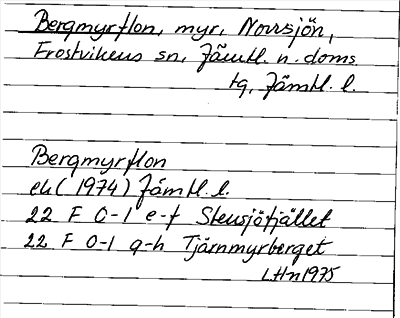 Bergmyrflon, myr, Norrsjön,
Frostvikens sn, Jämtl. n. doms
tg, Jämtl. l.
Bergmyrflon
ek (1974) Jämtl. l.
22 F 0-1 e-f Stensjöfjället
22 F 0-1 g-h Tjärnmyrberget
LHn 1975